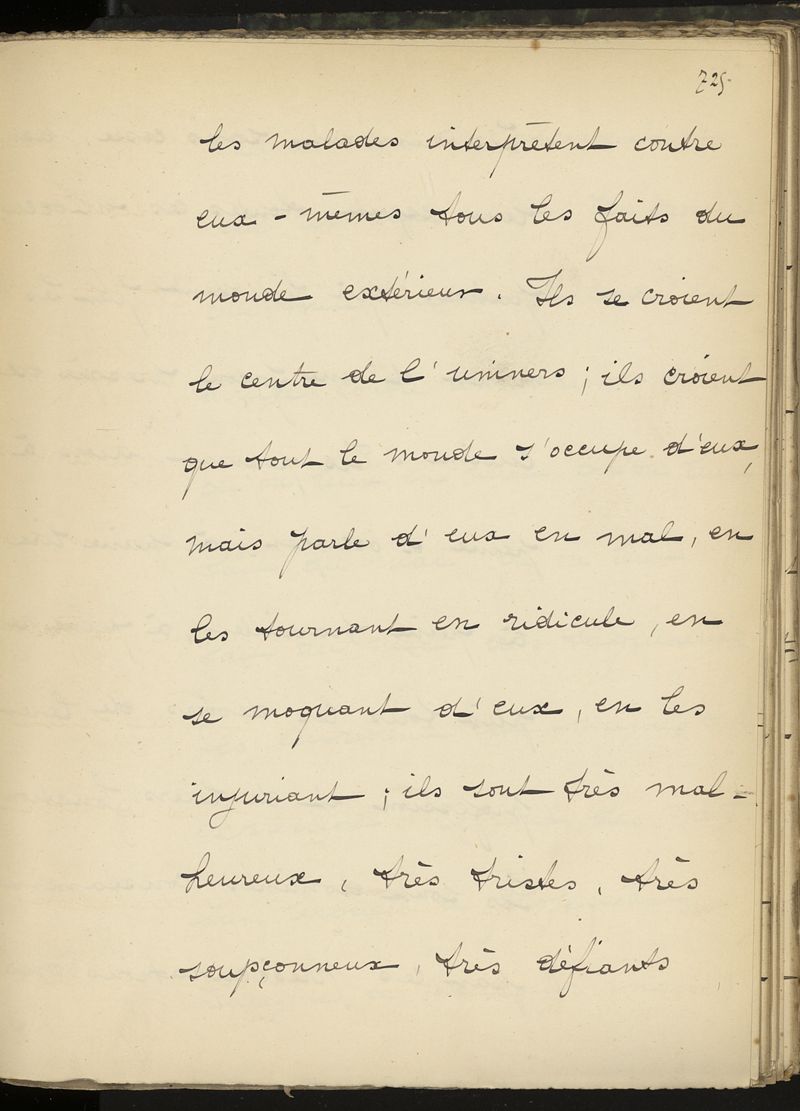 725
les malades interprètent contre
eux-mêmes tous les faits du
monde extérieur. Ils se croient
le centre de l'univers ; ils croient
que tout le monde s'occupe d'eux,
mais parle d'eux en mal, en
les tournant en ridicule, en
se moquant d'eux, en les
injuriant ; ils sont très mal-
heureux, très tristes, très
soupçonneux, très défiants